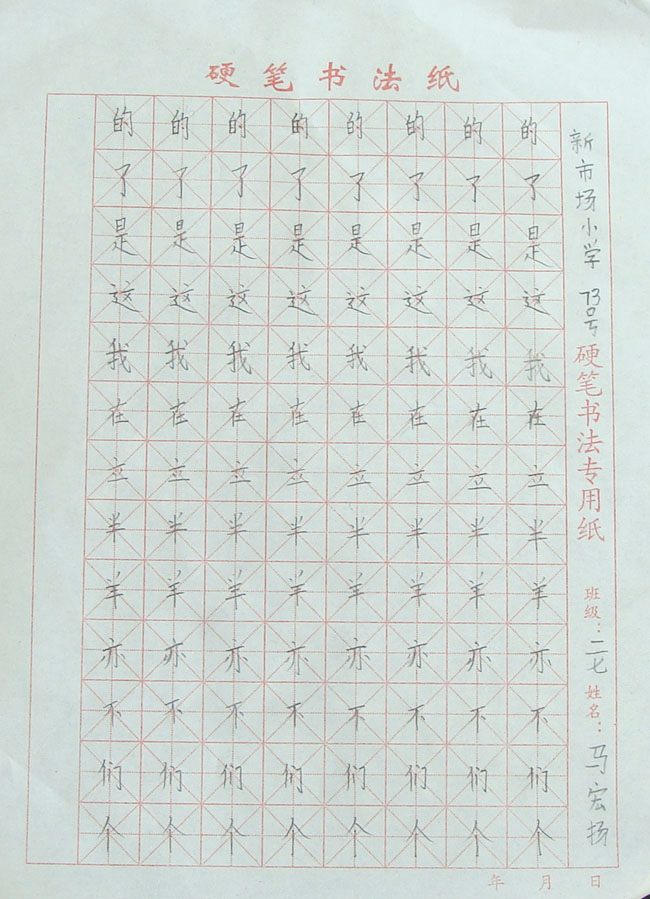 硬笔书法纸
的的的的的的的的
了了了了了了了了
是是是是是是是是
这这这这这这这这
我我我我我我我我
在在在在在在在在
立立立立立立立立
半半半半半半半半
羊羊羊羊羊羊羊羊
亦亦亦亦亦亦亦亦
不不不不不不不不
们们们们们们们们
个个个个个个个个
新市场小学 73号 硬笔书法专用纸 班级：二七 姓名：马宏扬
年 月 日